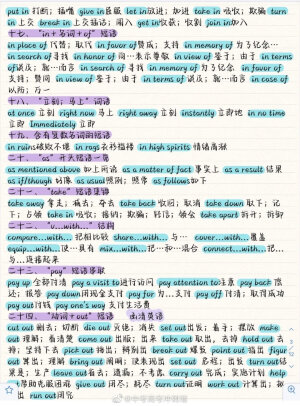 put in 打断；插嘴 give in 屈服 let in 放进；加进 take in 吸收；欺骗 turn
in 上交 break in 上交插话；闯入 get in 收获；收割 join in 加入
十七、"in+名词+of" 短语
in place of 代替；取代 in favor of 赞成；支持 in memory of 为了纪念…
in search of 寻找 in honor of 向…表示尊敬 in view of 鉴于；由于 in terms
of 谈及；就…而言 in search of 寻找 in memory of 为了纪念 in favor of
支持；赞同 in view of 鉴于；由于 in terms of 谈及；就…而言 in case of
以防；万一
十八、"立刻；马上" 词语
at once 立刻 right now 马上 right away 立刻 instantly 立即地 in no time
立即 Immediately 立即
十九、含有复数名词的短语
in ruins 破败不堪 in rags 衣衫褴褛 in high spirits 情绪高涨
二十、"as" 开头短语一览
as mentioned above 如上所诉 as a matter of fact 事实上 as a result 结果
as if/though 好像 as usual 照例；照常 as follows 如下
二十一、"take" 短语集锦
take away 拿走；减去；夺去 take back 收回；取消 take down 取下；记
下；占领 take in 吸收；接纳；欺骗；轻信；领会 take apart 拆开；拆卸
二十二、"v…with…" 结构
compare…with… 把相比较 share…with… 把…与… cover…with… 覆盖
equip…with… 使…具有 mix…with… 把…和…混合 connect…with… 把…
与…连接起来
二十三、"pay" 短语串联
pay up 全部付清 pay a visit to 进行访问 pay attention to 注意 pay back 偿
还；报答 pay down 用现金支付 pay for 为…支付 pay off 付清；取得成功
pay out 付钱 pay one's way 支付生活费
二十四、"动词+out" 短语
cut out 删去；切断 die out 灭绝；消失 set out 出发；着手；摆放 make
out 理解；看清楚 come out 出版；出来 take out 取出；去掉 hold out 支
持；坚持下去 pick out 挑出；辨别出 break out 爆发 point out 指出 figure
out 算出；理解 bring out 阐明；使表现出 set out 启程；出发 turn out 结
果是；生产 leave out 省去；遗漏；不考虑 carry out 完成；实施计划 help
out 帮助克服困难 give out 用尽；耗尽 turn out 证明 work out 计算出；算
出 run out 用完